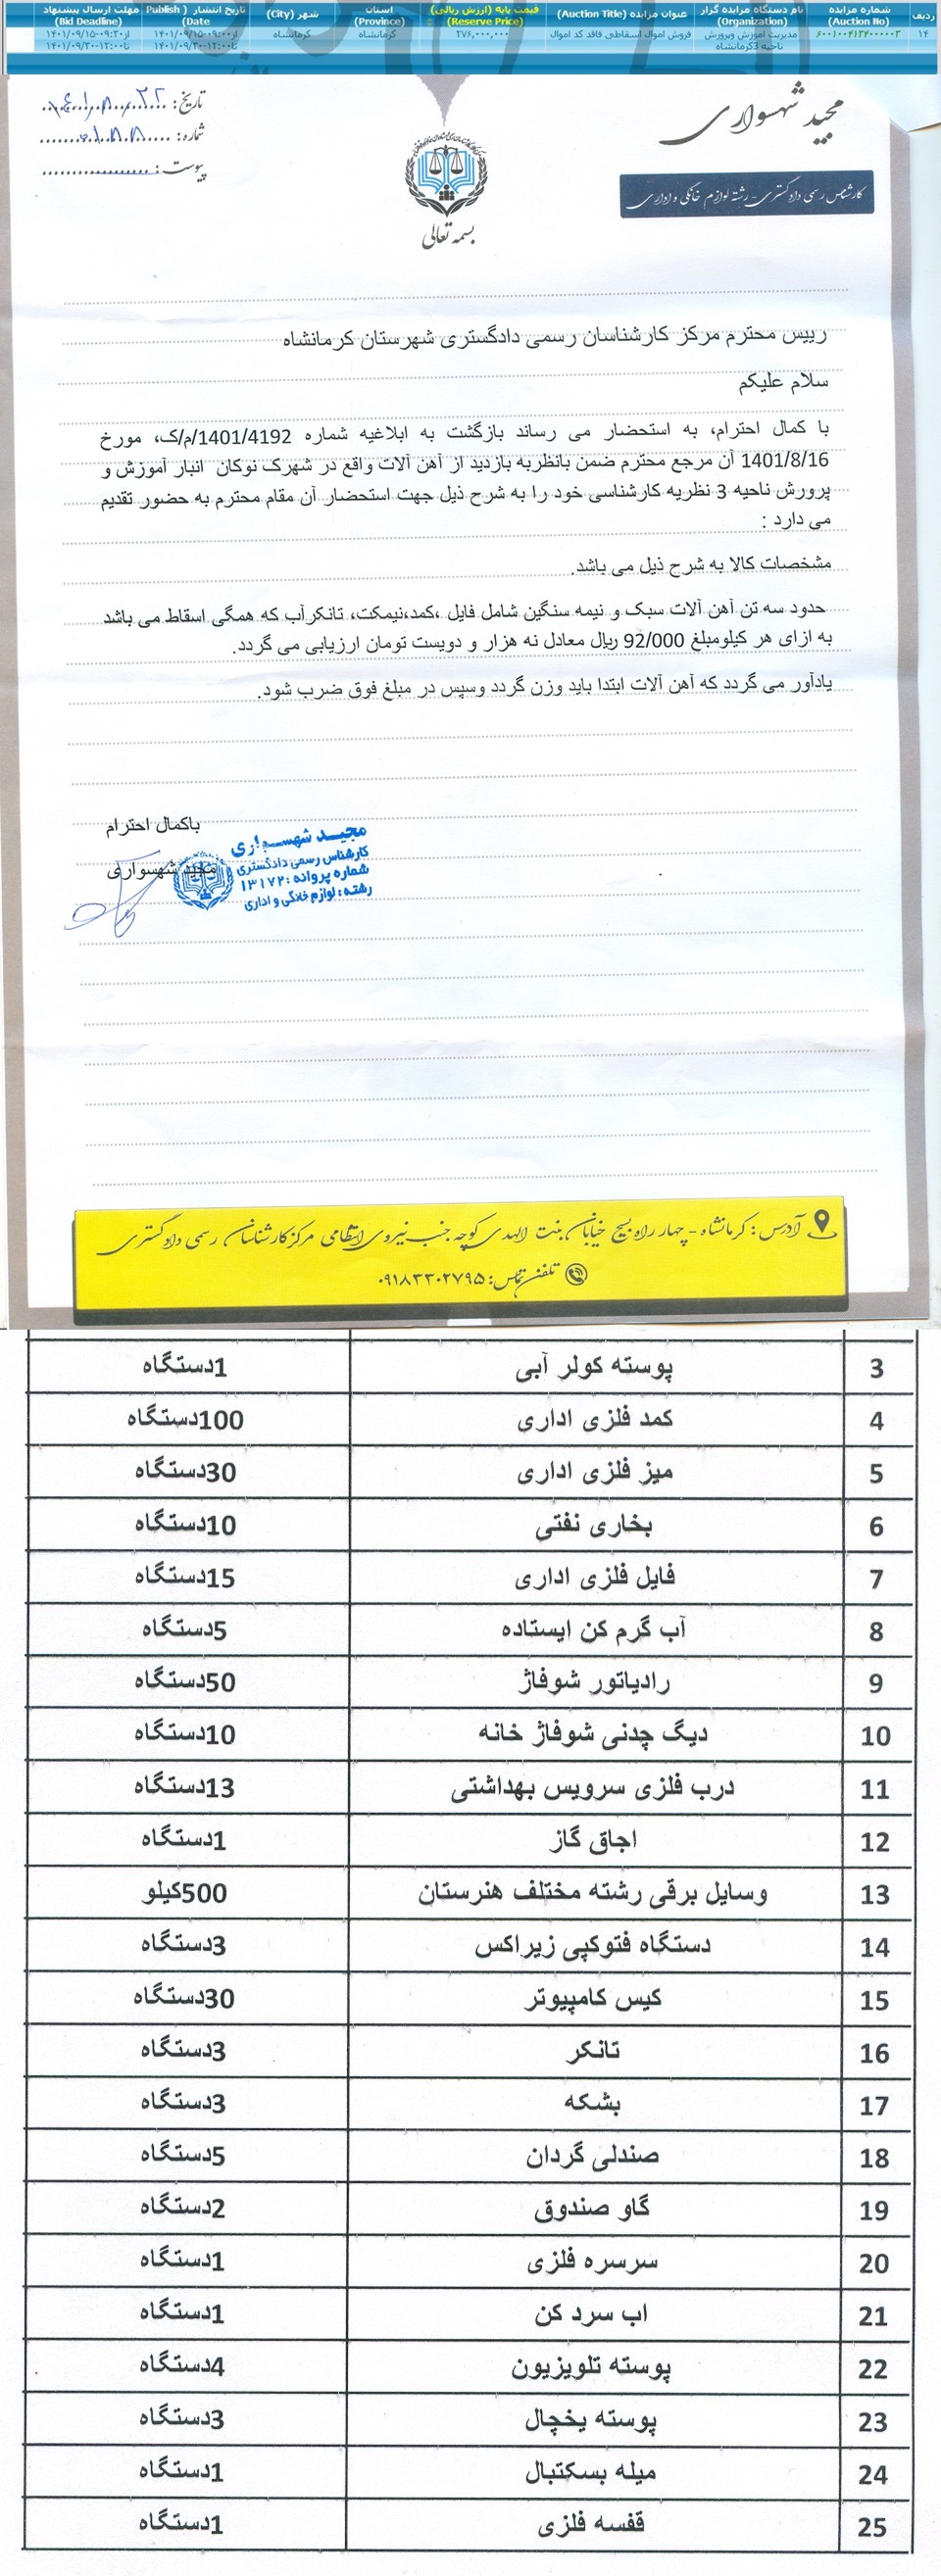 ردیف شماره مزایده (Auction No) نام دستگاه مزایده گزار (Organization) عنوان مزایده (Auction Title) قیمت پایه (ارزش ریالی) (Reserve Price) استان (Province) شهر (City) تاریخ انتشار (Publish Date) مهلت ارسال پیشنهاد (Bid Deadline)
۱۴ ۶۰۰۱۰۰۴۱۳۴۰۰۰۰۰۳ مدیریت آموزش وپرورش ناحیه 3کرمانشاه فروش اموال اسقاطی فاقد کد اموال ۲۷۶,۰۰۰,۰۰۰ کرمانشاه کرمانشاه از۰۹:۰۰-۱۴۰۱/۰۹/۱۵ تا۱۲:۰۰-۱۴۰۱/۰۹/۲۰ از۰۹:۳۰-۱۴۰۱/۰۹/۱۵ تا۱۲:۰۰-۱۴۰۱/۰۹/۳۰
مجید شهسواری
کارشناس رسمی دادگستری - رشته لوازم خانگی و اداری
تاریخ:
شماره:
پیوست:
بسمه تعالی
رییس محترم مرکز کارشناسان رسمی دادگستری شهرستان کرمانشاه
سلام علیکم
با کمال احترام، به استحضار می رساند بازگشت به ابلاغیه شماره 1401/4192/م/ک، مورخ
1401/8/16 آن مرجع محترم ضمن بانظربه بازدید از آهن آلات واقع در شهرک نوکان انبار آموزش و
پرورش ناحیه 3 نظریه کارشناسی خود را به شرح ذیل جهت استحضار آن مقام محترم به حضور تقدیم
می دارد :
مشخصات کالا به شرح ذیل می باشد.
حدود سه تن آهن آلات سبک و نیمه سنگین شامل فایل ،کمد،نیمکت، تانکرآب که همگی اسقاط می باشد
به ازای هر کیلومبلغ 92/000 ریال معادل نه هزار و دویست تومان ارزیابی می گردد.
یادآور می گردد که آهن آلات ابتدا باید وزن گردد وسپس در مبلغ فوق ضرب شود.
باکمال احترام
مجید شهسواری
مجید شهسواری
کارشناس رسمی دادگستری
شماره پروانه : ۱۳۱۷۲
رشته : لوازم خانگی و اداری
آدرس: کرمانشاه - چهار راه بسیج خیابان بنت الهدی کوچه جنب نیروی انتظامی مرکز کارشناسان رسمی دادگستری
تلفن تماس: ۰۹۱۸۳۳۰۲۷۹۵
3 پوسته کولر آبی 1دستگاه
4 کمد فلزی اداری 100دستگاه
5 میز فلزی اداری 30دستگاه
6 بخاری نفتی 10دستگاه
7 فایل فلزی اداری 15دستگاه
8 آب گرم کن ایستاده 5دستگاه
9 رادیاتور شوفاژ 50دستگاه
10 دیگ چدنی شوفاژ خانه 10دستگاه
11 درب فلزی سرویس بهداشتی 13دستگاه
12 اجاق گاز 1دستگاه
13 وسایل برقی رشته مختلف هنرستان 500کیلو
14 دستگاه فتوکپی زیراکس 3دستگاه
15 کیس کامپیوتر 30دستگاه
16 تانکر 3دستگاه
17 بشکه 3دستگاه
18 صندلی گردان 5دستگاه
19 گاو صندوق 2دستگاه
20 سرسره فلزی 1دستگاه
21 اب سرد کن 1دستگاه
22 پوسته تلویزیون 4دستگاه
23 پوسته یخچال 3دستگاه
24 میله بسکتبال 1دستگاه
25 قفسه فلزی 1دستگاه